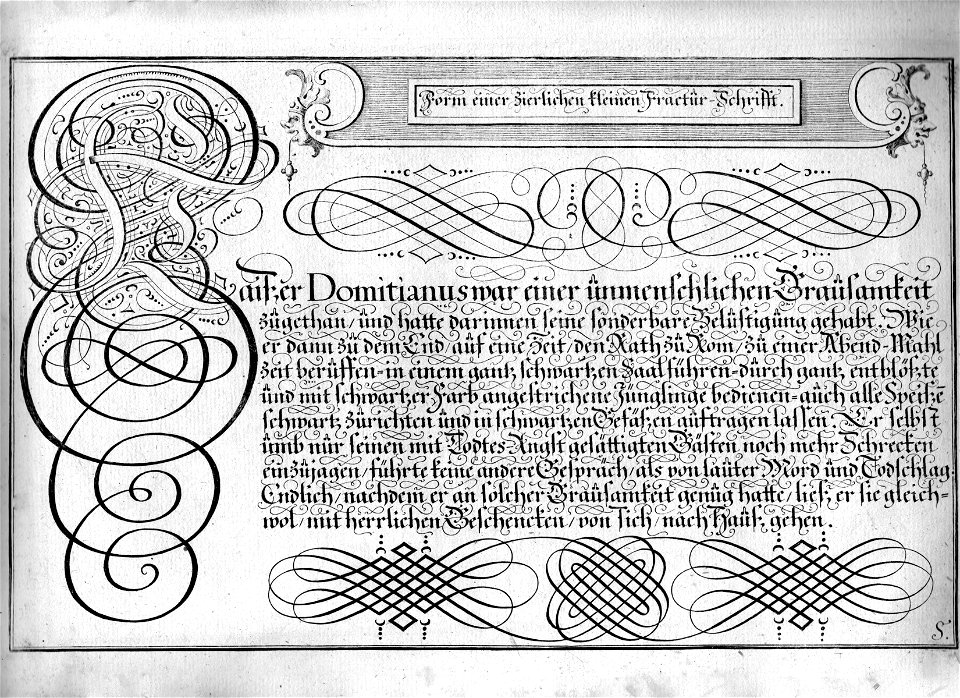 Form einer zierlichen kleinen Fractur-Schrifft.
Kaiszer Domitianus war einer unmenschlichen Grausamkeit
zugethan / und hatte darinnen seine sonderbare Belustigung gehabt. Wie
er dann zu dem End / auf eine Zeit / den Rath zu Rom / zu einer Abend-Mahl
Zeit beruffen - in einem gantz schwartzen Saal führen - durch gantz entblöszte
und mit schwartzer Farb angestrichene Jünglinge bedienen - auch alle Speisz̄e
schwartz zurichten und in schwartzen Gefäszen auftragen lassen. Er selbst
umb nur seinen mit Todtes Angst gesättigten Gästen noch mehr Schrecken
einzujagen / führte keine andere Gespräch / als von lauter Mord und Todschlag:
Endlich / nachdem er an solcher Grausamkeit genug hatte / liesz er sie gleich-
wol / mit herrlichen Geschencken / von sich / nach Hausz gehen.
S.